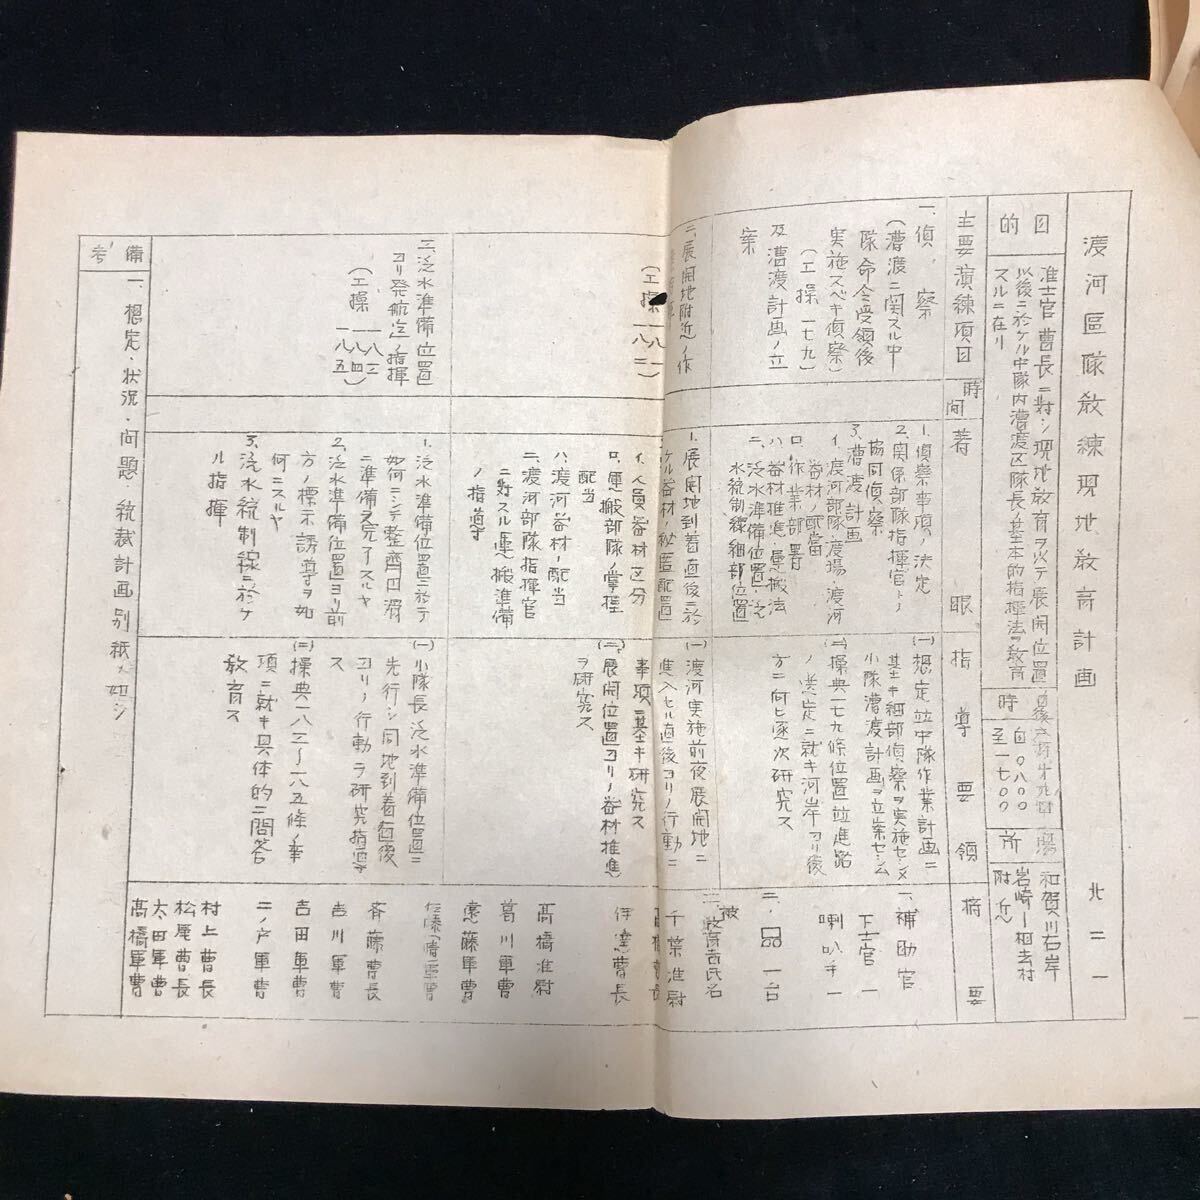 渡河區隊教練現地教育計画
北二一
目的
准士官曹長ニ対シ現地教育ヲ以テ展開位置
以後ニ於ケル中隊内漕渡区隊長ノ基本的指揮法ヲ教育
スルニ在リ
時
自〇八〇〇
至一七〇〇
場所
和賀川右岸
岩崎ー相去村
附近
主要演練項目
時間
著眼
指導要領
摘要
一、偵察
(漕渡ニ関スル中
隊命令受領後
実施スベキ偵察)
(工操一七九)
及漕渡計画ノ立
案
1.偵察事項ノ決定
2.関係部隊指揮官トノ
協同偵察
3.漕渡計画
イ、渡河部隊・渡場・渡河
器材ノ配當
ロ、作業部署
ハ、器材推進・運搬法
ニ、泛水準備位置・泛
水統制線細部位置
(一)想定竝中隊作業計画ニ
基キ細部偵察ヲ実施セシメ
小隊漕渡計画ヲ立案セシム
(二)操典一七九條位置竝進路
ノ選定ニ就キ河岸ヨリ後
方ニ向ヒ逐次研究ス
一、補助官
下士官一
喇叭手一
二、
一台
三、被教育者氏名
二、展開地附近ノ作
(工操一八一
一八二)
1.展開地到着直後ニ於
ケル器材ノ秘匿配置
イ、人員器材区分
ロ、運搬部隊ノ掌握
配当
ハ、渡河器材ノ配当
ニ、渡河部隊指揮官
ニ対スル運搬準備
ノ指導
(一)渡河実施前夜展開地ニ
進入セル直後ヨリノ行動ニ
事項ニ基キ研究ス
(二)展開位置ヨリノ器材推進
ヲ研究ス
千葉准尉
伊達曹長
高橋准尉
葛川軍曹
遠藤軍曹
三、泛水準備位置
ヨリ発航迄ノ指揮
(工操一八三
一八四
一八五)
1.泛水準備位置ニ於テ
如何ニシテ整齊円滑
ニ準備ヲ完了スルヤ
2.泛水準備位置ヨリ前
方ノ標示誘導ヲ如
何ニスルヤ
3.泛水統制線ニ於ケ
ル指揮
(一)小隊長泛水準備位置ニ
先行シ同地到着直後
ヨリノ行動ヲ研究指導
ス
(二)操典一八三〜一八五條ノ事
項ニ就キ具体的ニ問答
教育ス
佐藤(晴)軍曹
斉藤曹長
吉川軍曹
吉田軍曹
二ノ戸軍曹
村上曹長
松尾曹長
太田軍曹
髙橋軍曹
備考
一、想定・状況・問題・統裁計画別紙ノ如シ